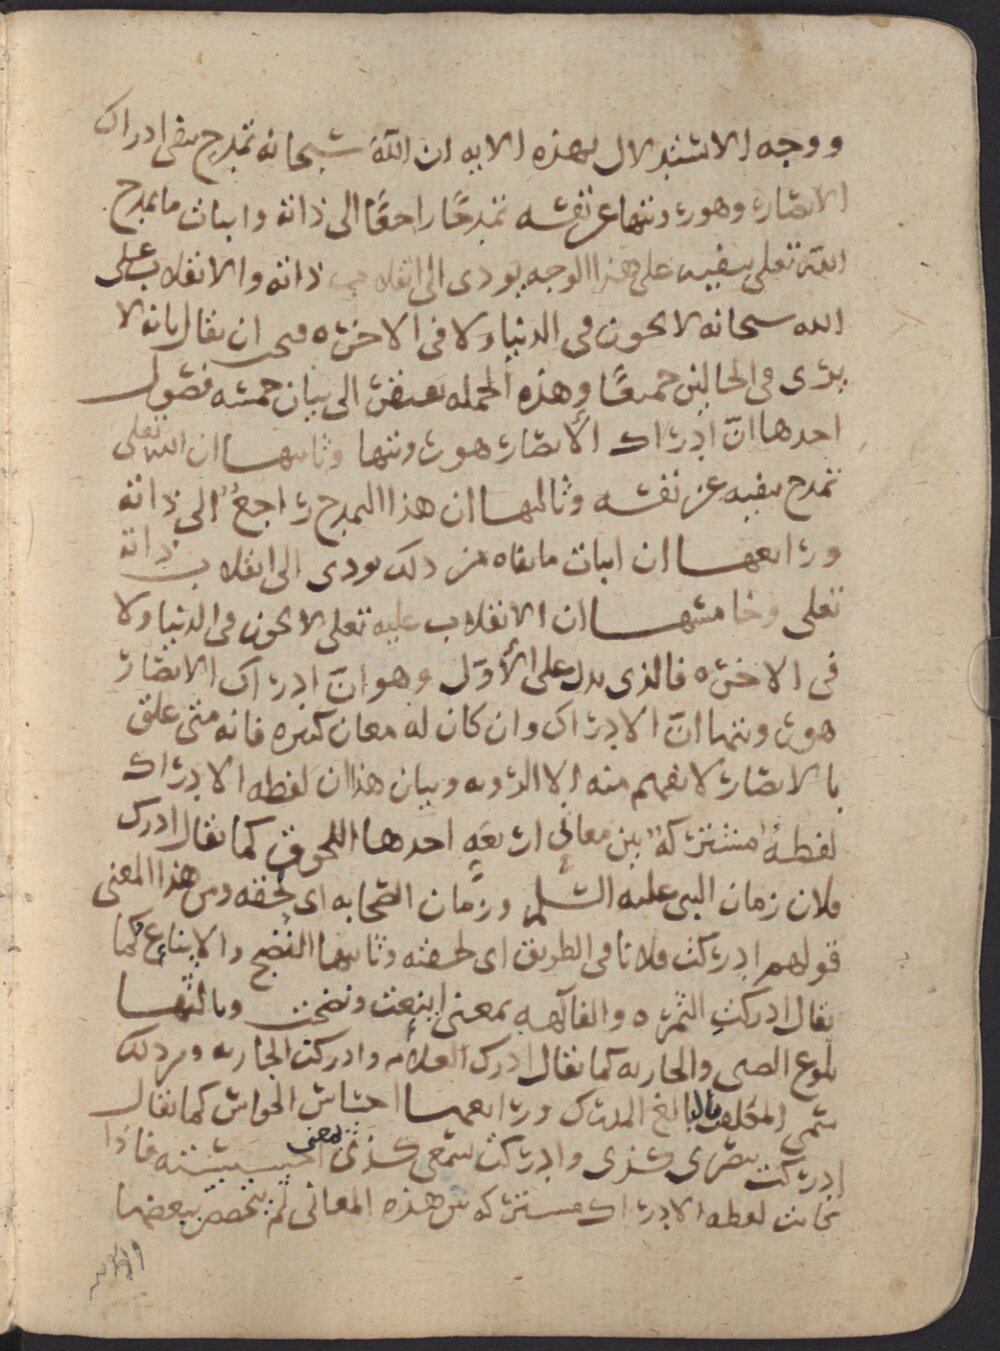 ووجه الاستدلال بهذه الايه ان الله سبحانه تمدح بنفي ادراك
الابصار وهو رؤيتها عن نفسه تمدحًا راجعًا الى ذاته واثبات ما تمدح
الله تعلى بنفيه على هذا الوجه يودي الى انقلاب ذاته والانقلاب على
الله سبحانه لا يجوز في الدنيا ولا في الاخره فصح ان يقال بانه لا
يرى في الحالين جميعًا وهذه الجمله تفتقر الى بيان خمسه فصول
احدها انّ ادراك الأبصار هو رؤيتها وثانيها ان الله تعلى
تمدح بنفيه عن نفسه وثالثها ان هذا التمدح راجعٌ الى ذاته
ورابعها ان اثبات ما نفاه من ذلك يودي الى انقلاب ذاته
تعلى وخامسها ان الانقلاب عليه تعلى لا يجوز في الدنيا ولا
في الاخره فالذي يدل على الأوّل وهو انّ ادراك الابصار
هو رؤيتها انّ الادراك وان كان له معان كثيره فانه متى علق
بالابصار لا يفهم منه الا الرويه وبيان هذا ان لفظه الادراك
لفظهٌ مشتركهٌ بين معانٍ اربعهٍ احدها اللحوق كما يقال ادرك
فلان زمان النبي عليه السلم وزمان الصحابه اي لحقه ومن هذا المعنى
قولهم ادركت فلانا في الطريق اي لحقته وثانيها النضج والايناع كما
يقال ادركت الثمره والفاكهه بمعنى اينعت ونضجت وثالثها
بلوغ الصبي والجاريه كما يقال ادرك الغلام وادركت الجاريه ومن ذلك
سمي المكلف بالبالغ المدرك ورابعها احساس الحواس كما يقال
ادركت ببصري كذى وادركت بسمعي كذى بمعنى احسسته فاذا
كانت لفظه الادراك مشتركه بين هذه المعاني لم يتخصص ببعضها